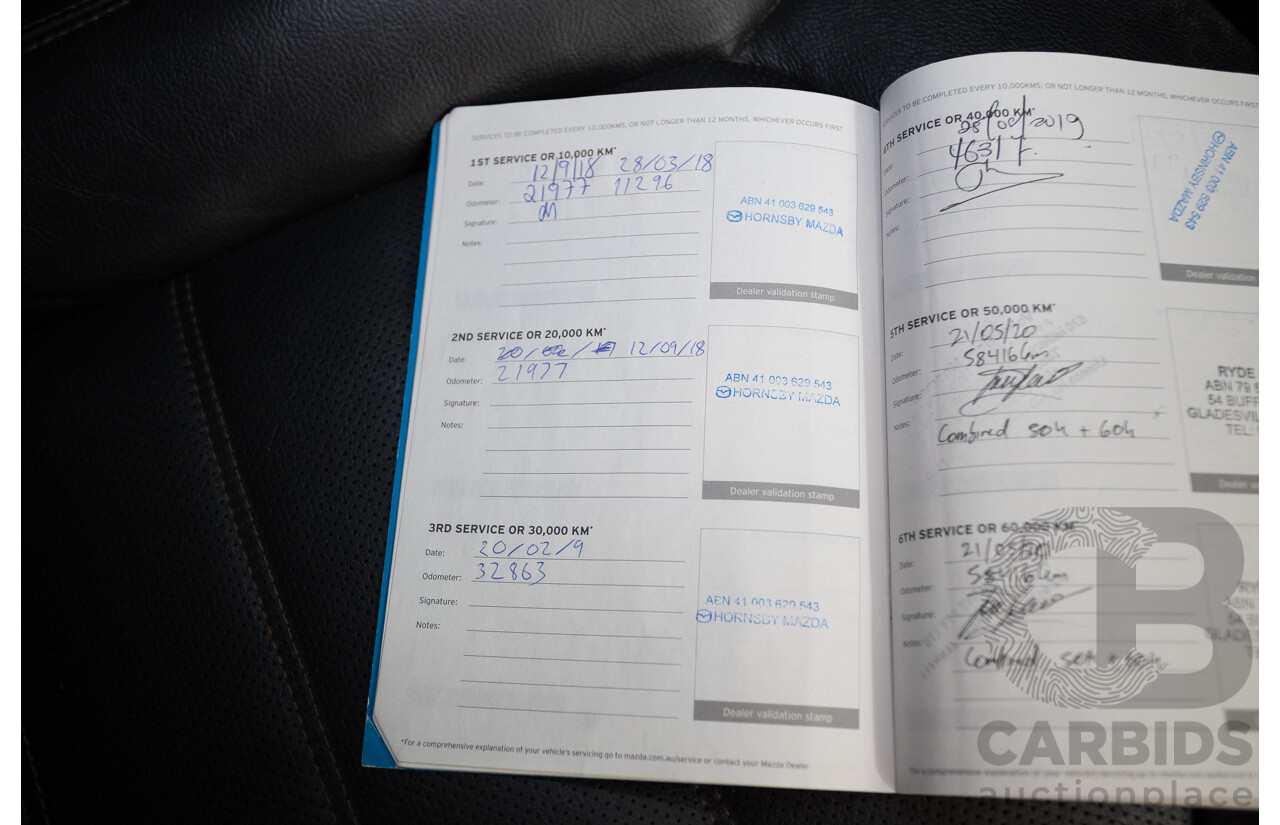 SERVICES TO BE COMPLETED EVERY 10,000KMS, OR NOT LONGER THAN 12 MONTHS, WHICHEVER OCCURS FIRST
1ST SERVICE OR 10,000 KM*
Date: 12/9/18 28/03/18
Odometer: 21977 11296
Signature:
Notes:
ABN 41 003 629 543
HORNSBY MAZDA
Dealer validation stamp
2ND SERVICE OR 20,000 KM*
Date: 12/09/18
Odometer: 21977
Signature:
Notes:
ABN 41 003 629 543
HORNSBY MAZDA
Dealer validation stamp
3RD SERVICE OR 30,000 KM*
Date: 20/02/9
Odometer: 32863
Signature:
Notes:
ABN 41 003 629 543
HORNSBY MAZDA
Dealer validation stamp
*For a comprehensive explanation of your vehicle's servicing go to mazda.com.au/service or contact your Mazda Dealer
SERVICES TO BE COMPLETED EVERY 10,000KMS, OR NOT LONGER THAN 12 MONTHS, WHICHEVER OCCURS FIRST
4TH SERVICE OR 40,000 KM*
Date: /2019
Odometer: 46317
Signature:
Notes:
ABN 41 003 629 543
HORNSBY MAZDA
Dealer validation
5TH SERVICE OR 50,000 KM*
Date: 21/05/20
Odometer: 58416km
Signature:
Notes: Combined 50k + 60k
RYDE
ABN 79
54 BUFF
GLADESVIL
TEL:
Dealer va
6TH SERVICE OR 60,000 KM*
Date: 21/05/20
Odometer:
Signature:
Notes: Combined
CB
CARBIDS
auctionplace